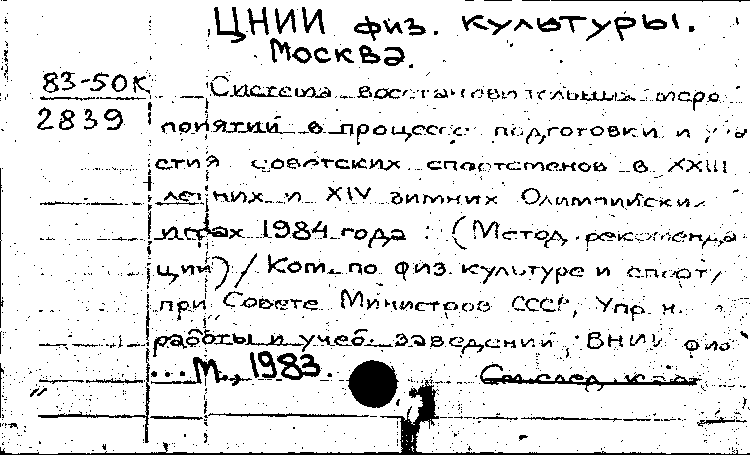 ЦНИИ физ. культуры.
Москва.
83-50К Система восстановительных меро
2839 приятий в процессе подготовки и уча
стия советских спортсменов в XXIII
летних и XIV зимних Олимпийских
играх 1984 года : (Метод. рекоменда
ции) / Ком. по физ. культуре и спорту
при Совете Министров СССР, Упр. н.
работы и учеб. заведений, ВНИИ физ
... М., 1983. См. след. к-а